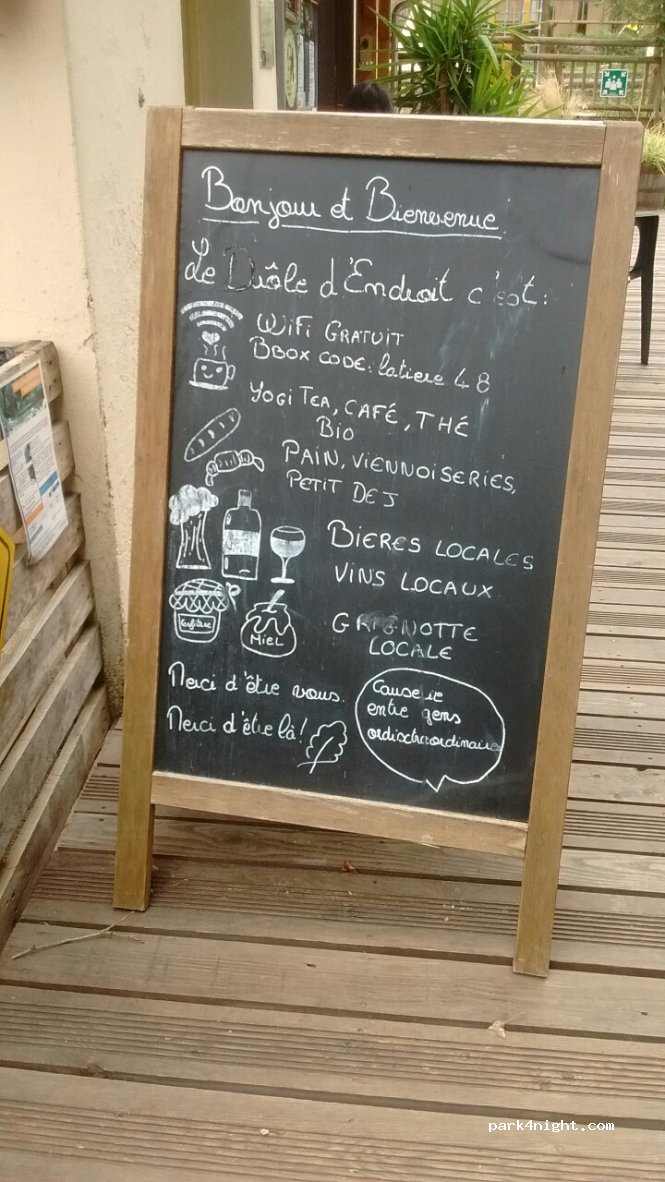 Bonjour et Bienvenue
Le Drôle d'Endroit c'est:
WiFi GRATUIT
BBOX CODE: latiere 48
YOGI TEA, CAFÉ, THÉ
BIO
PAIN, VIENNOISERIES,
PETIT DEJ
BIERES LOCALES
VINS LOCAUX
GRIGNOTTE
LOCALE
Confiture
MIEL
Merci d'être vous.
Merci d'être là!
Causerie
entre gens
park4night.com